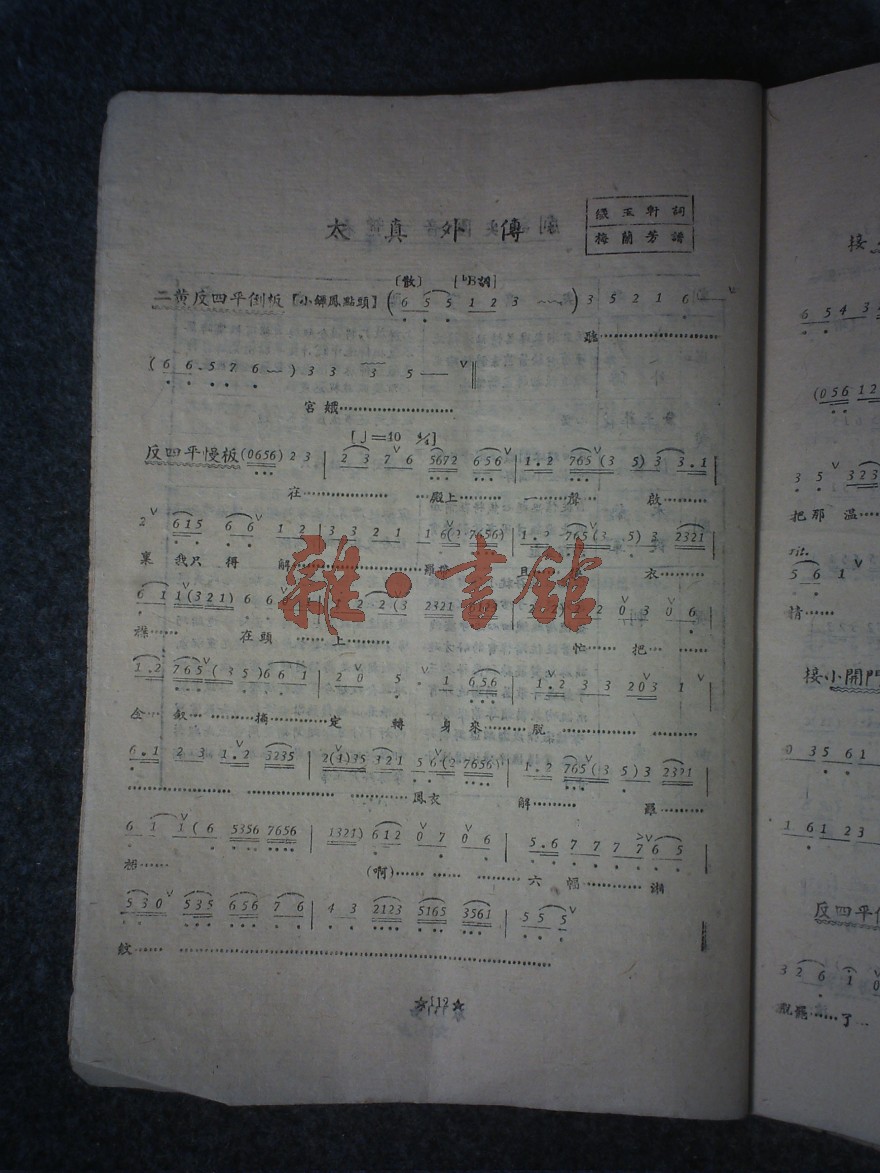 太真外傳
綴玉軒詞
梅蘭芳譜
[散] [♭B調]
二黄反四平倒板【小鑼鳳點頭】( 6 5 5 1 2 3 ) 3 5 2 1 6
聽
( 6 6 . 5 7 6 ) 3 3 3 5
宮娥
[♩=10 4/4]
反四平慢板 (0656) 2 3 | 2 3 7 6 5672 656 | 1.2 765 (3 5) 3 3.1
在 殿上 一聲 啟
2 615 6 6 1 2 | 3 3 2 1
稟 我只得 解 羅
且 衣
6 1 1(321) 6 6
在頭 上 忙 把
1.2 765(35)66 1 | 2 0 5 . 1 656 | 1.2 3 3 203 1
金 釵 摘 定 轉 身來 脫
6.1 2 3 1.2 3235 | 2(1)35 321 5 6(2 7656) | 1.2 765(35)3 2321
鳳衣 解 羅
6 1 1(6 5356 7656 | 1321) 612 0 7 0 6 | 5.6 7 7 7 7 7 6 5
(啊) 六 幅 湘
5 3 0 535 656 7 6 | 4 3 2123 5165 3561 | 5 5 5
紋
☆112☆
雜·書館
接
6 5 4 3
(056 12
3 5 323
把那溫
rit.
5 6 1
情
接小開門
0 35 61
1 6 1 2 3
反四平
3 2 6 1 0
亂罷 了